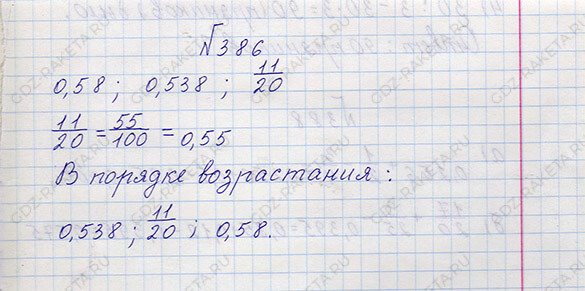 №386
0,58 ; 0,538 ; 11/20
11/20 = 55/100 = 0,55
В порядке возрастания :
0,538 ; 11/20 ; 0,58.